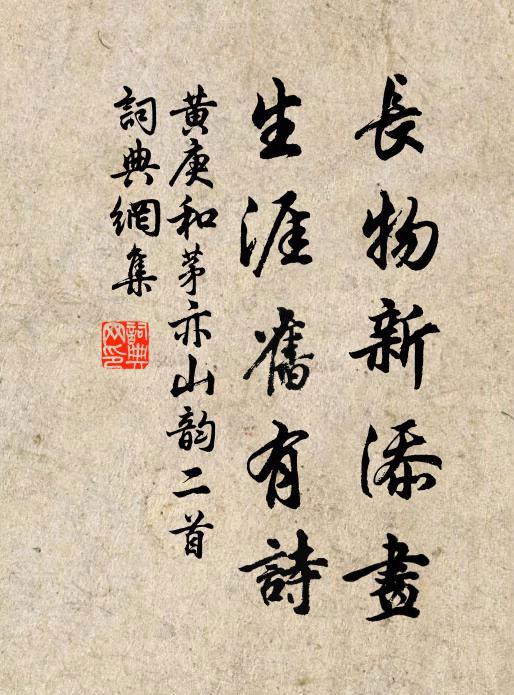 長物新添畫
生涯舊有詩
黃庚和茅亦山韵二首
詞典網集
詞典網印